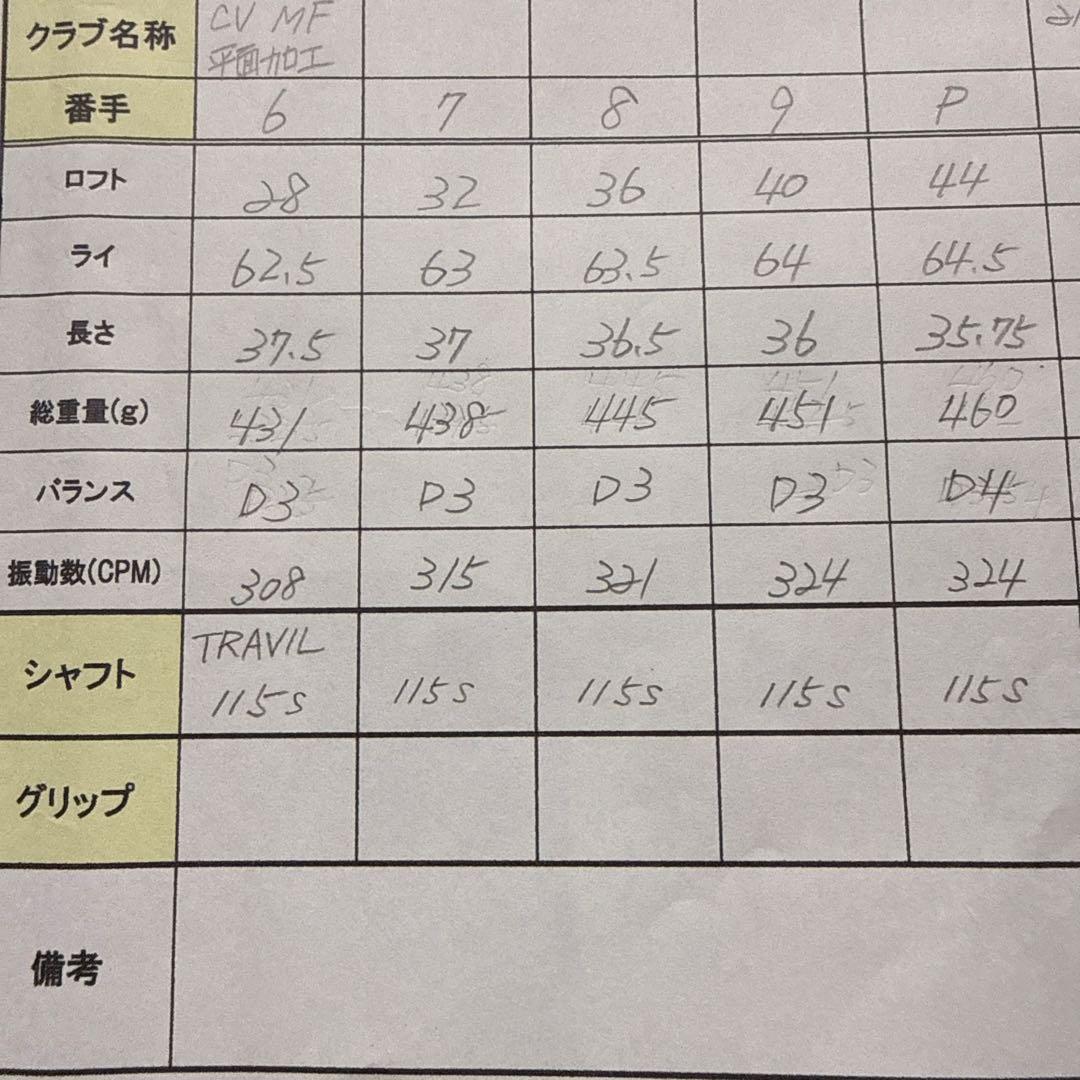 クラブ名称 CV MF
平面加工
番手 6 7 8 9 P
ロフト 28 32 36 40 44
ライ 62.5 63 63.5 64 64.5
長さ 37.5 37 36.5 36 35.75
総重量(g) 431 438 445 451 460
バランス D3 D3 D3 D3 D4
振動数(CPM) 308 315 321 324 324
シャフト TRAVIL
115S 115S 115S 115S 115S
グリップ
備考